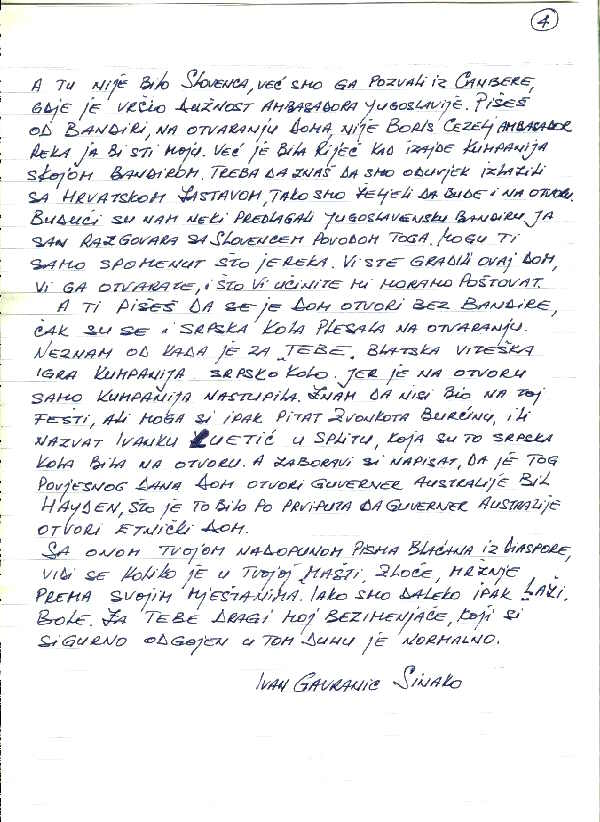 4
A TU NIJE BILO SLOVENCA, VEĆ SMO GA POZVALI IZ CANBERE,
GDJE JE VRŠIO DUŽNOST AMBASADORA YUGOSLAVIJE. PIŠEŠ
OD BANDIRI, NA OTVARANJU DOMA, NIJE BORIS CEZELJ AMBASADOR
REKA JA BI STI MOJU. VEĆ JE BILA RIJEČ KAD IZAJDE KUMPANIJA
SKOJOM BANDIROM. TREBA DA ZNAŠ DA SMO ODUVJEK IZLAZILI
SA HRVATSKOM ZASTAVOM, TAKO SMO ŽELJELI DA BUDE I NA OTVORU.
BUDUĆI SU NAM NEKI PREDLAGALI YUGOSLAVENSKU BANDIRU JA
SAN RAZGOVARA SA SLOVENCEM POVODOM TOGA. MOGU TI
SAMO SPOMENUT ŠTO JE REKA. VI STE GRADILI OVAJ DOM,
VI GA OTVARATE, I ŠTO VI UČINITE MI MORAMO POŠTOVAT.
A TI PIŠEŠ DA SE JE DOM OTVORI BEZ BANDIRE,
ČAK SU SE I SRPSKA KOLA PLESALA NA OTVARANJU.
NEZNAM OD KADA JE ZA "TEBE" BLATSKA VITEŠKA
IGRA KUMPANIJA SRPSKO KOLO. JER JE NA OTVORU
SAMO KUMPANIJA NASTUPILA. ZNAM DA NISI BIO NA TOJ
FEŠTI, ALI MOGA SI IPAK PITAT ZVONKOTA BURĆINU, ILI
NAZVAT IVANKU CVETIĆ U SPLITU, KOJA SU TO SRPSKA
KOLA BILA NA OTVORU. A ZABORAVI SI NAPISAT, DA JE TOG
POVJESNOG DANA DOM OTVORI GUVERNER AUSTRALIJE BIL
HAYDEN, ŠTO JE TO BILO PO PRVIPUTA DA GUVERNER AUSTRALIJE
OTVORI ETNIČKI DOM.
SA ONOM TVOJOM NADOPUNOM PISMA BLAĆANA IZ DIASPORE,
VIDI SE KOLIKO JE U TVOJOJ MAŠTI, ZLOĆE, MRŽNJE
PREMA SVOJIM MJEŠTANIMA. IAKO SMO DALEKO IPAK LAŽI,
BOLE. ZA TEBE DRAGI MOJ BEZIMENJAČE, KOJI SI
SIGURNO ODGOJEN U TOM DUHU JE NORMALNO.
IVAN GAVRANIC SINAKO